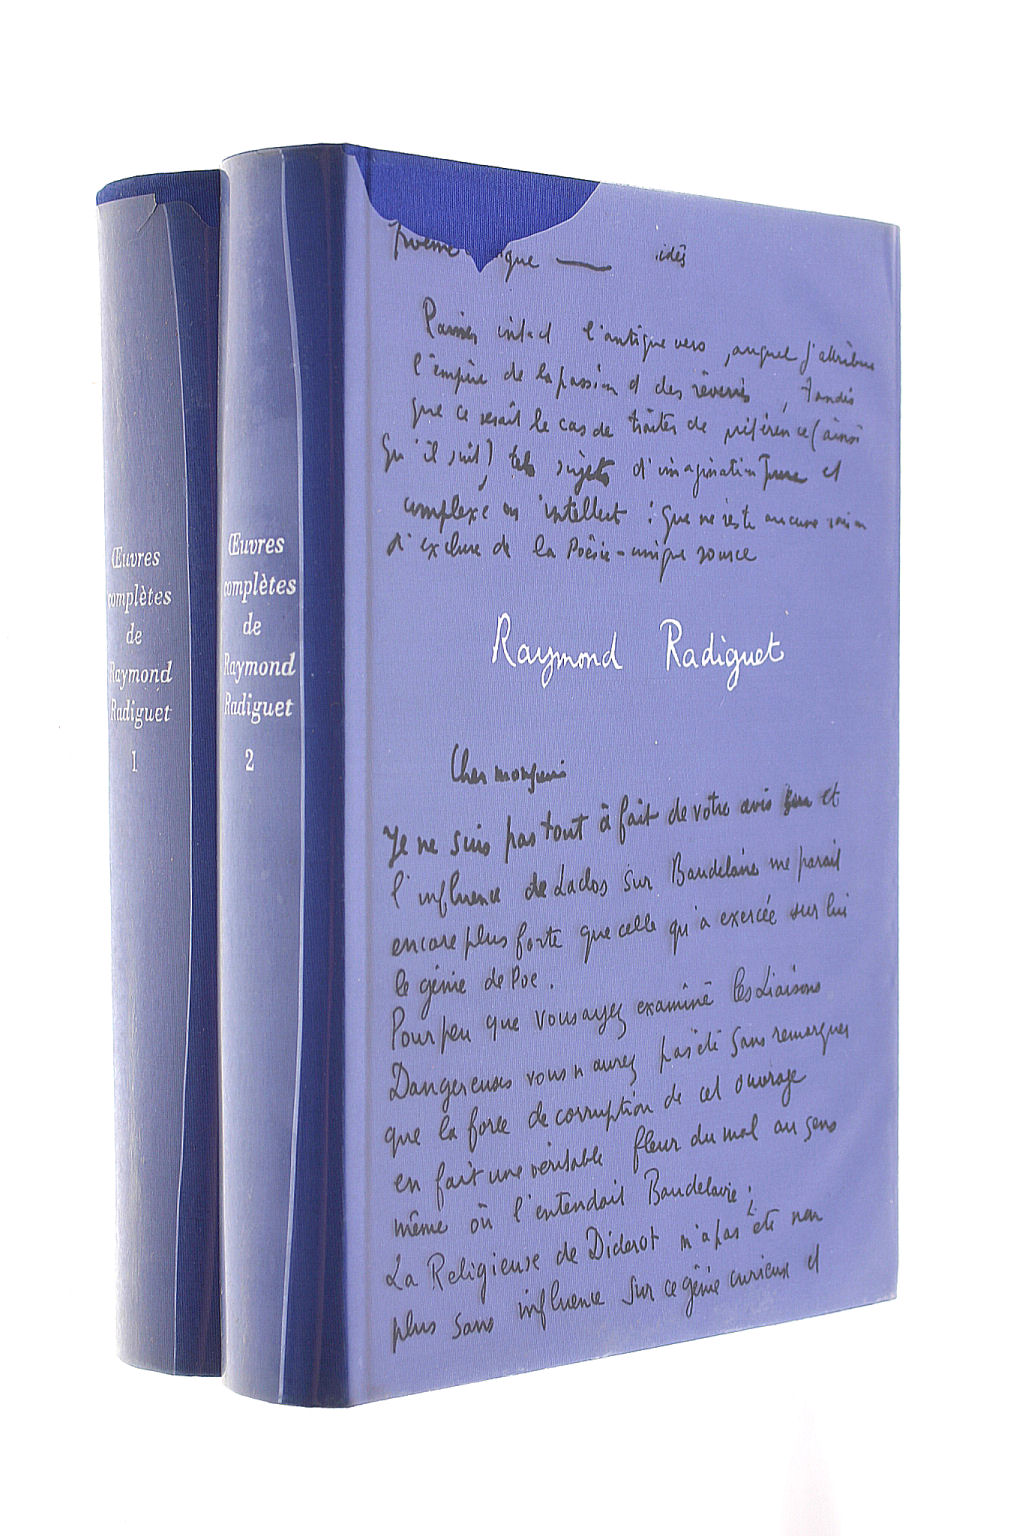 Œuvres
complètes
de
Raymond
Radiguet
1
Œuvres
complètes
de
Raymond
Radiguet
2
idés
intact l'antique vers, auquel j'attribue
l'empire de la passion et des rêveries, tandis
que ce serait le cas de traiter de préférence (ainsi
qu'il suit) tels sujets d'imagination pure et
complexe ou intellect : que ne reste aucune raison
d'exclure de la Poésie - unique source
Raymond Radiguet
Cher monsieur
Je ne suis pas tout à fait de votre avis et
l'influence de Laclos sur Baudelaire me parait
encore plus forte que celle qu'a exercée sur lui
le génie de Poe.
Pour peu que vous ayez examiné les Liaisons
Dangereuses vous n'aurez pas été sans remarquer
que la force de corruption de cet ouvrage
en fait une véritable fleur du mal au sens
même où l'entendait Baudelaire ;
La Religieuse de Diderot n'a pas été non
plus sans influence sur ce génie curieux et